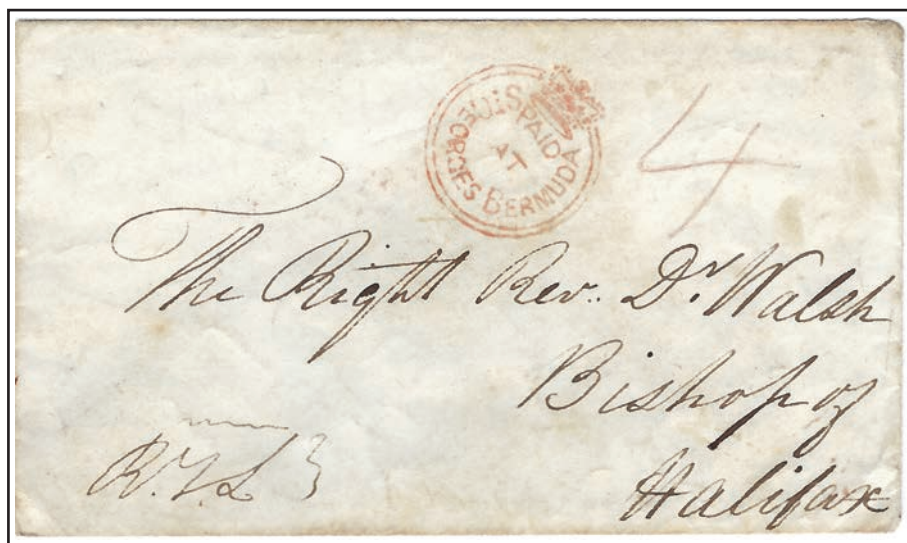 PAID AT ST GEORGES BERMUDA
4
The Right Rev. Dr. Walsh
Bishop of
Halifax